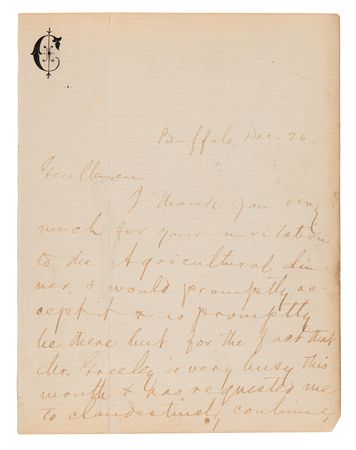 C
Buffalo, Dec. 26.
Gentlemen
I thank you very
much for your invitation
to the Agricultural din-
ner, & would promptly ac-
cept it & as promptly
be there but for the fact that
Mr. Greeley is very busy this
month & has requested me
to clandestinely continue